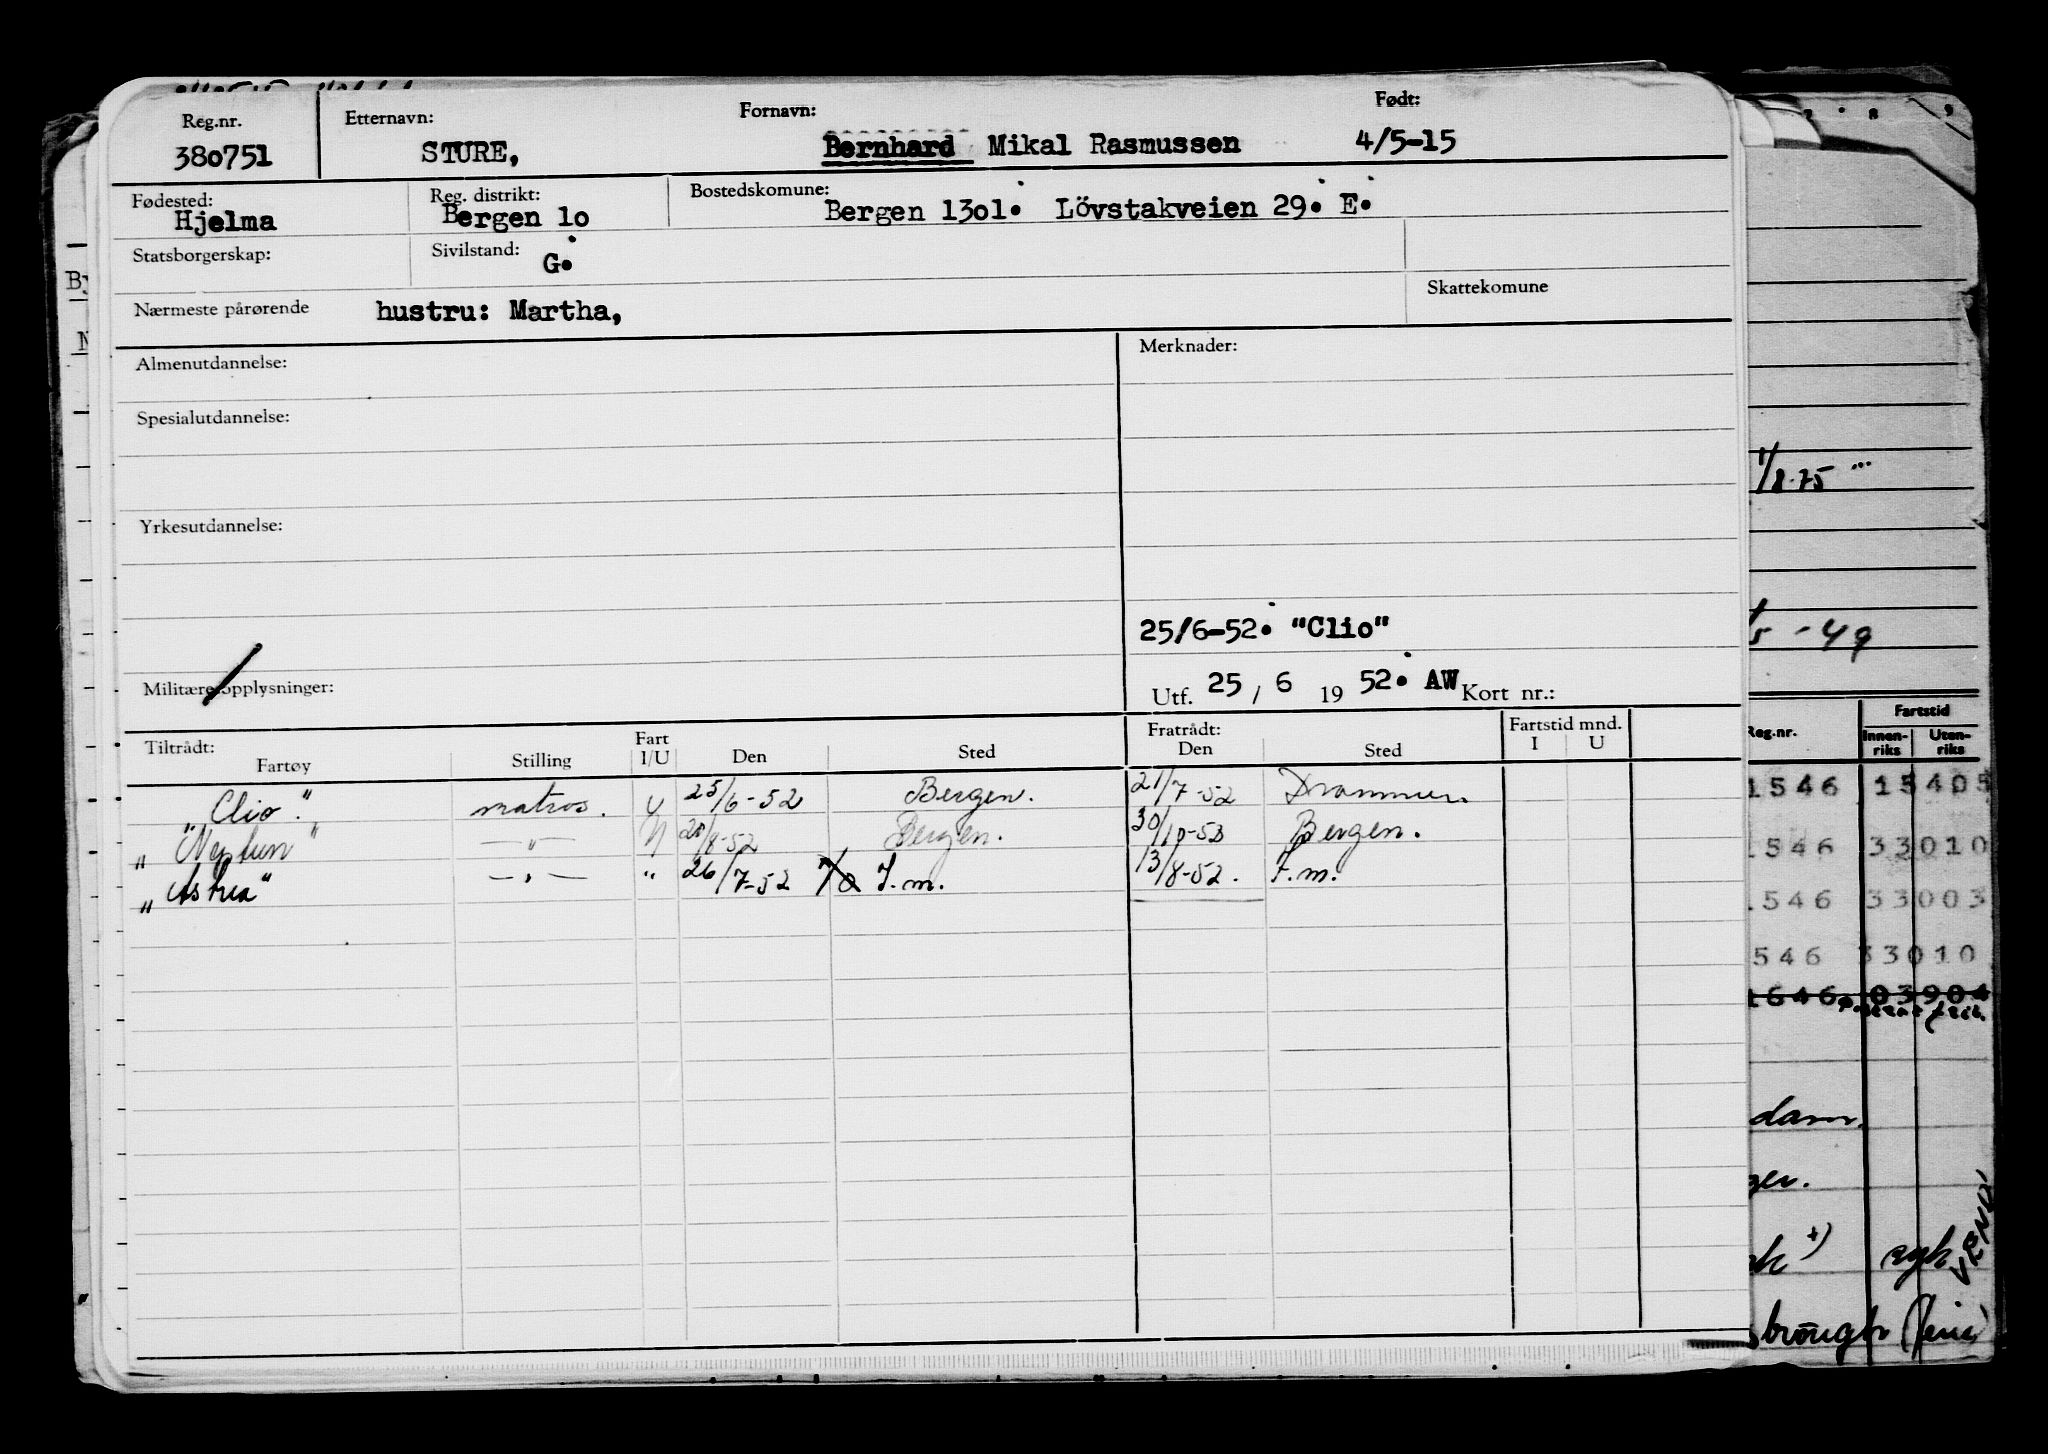 Reg.nr. Etternavn: Fornavn: Født:
380751 STURE, Bernhard Mikal Rasmussen 4/5-15
Fødested: Reg. distrikt: Bostedskomune:
Hjelma Bergen 10 Bergen 1301. Lövstakveien 29. E.
Statsborgerskap: Sivilstand: G.
Nærmeste pårørende hustru: Martha, Skattekomune
Almenutdannelse: Merknader:
Spesialutdannelse:
Yrkesutdannelse:
25/6-52. "Clio"
Militære opplysninger: Utf. 25 / 6 19 52. AW Kort nr.:
Tiltrådt: Fart Fratrådt: Fartstid mnd.
Fartøy Stilling I/U Den Sted Den Sted I U
"Clio". matros. U 25/6-52 Bergen. 21/7-52 Drammen.
"Neptun" —"— 8-52 Bergen. 30/10-53 Bergen.
"Astrea" —"— " 26/7-52 J.m. 13/8-52. F.m.
By
N
1/8-75
5 - 49
Reg.nr. Fartstid
Innen-riks Uten-riks
1546 15405
1546 33010
1546 33003
546 33010
1646 03904
dam.
gen.
syk